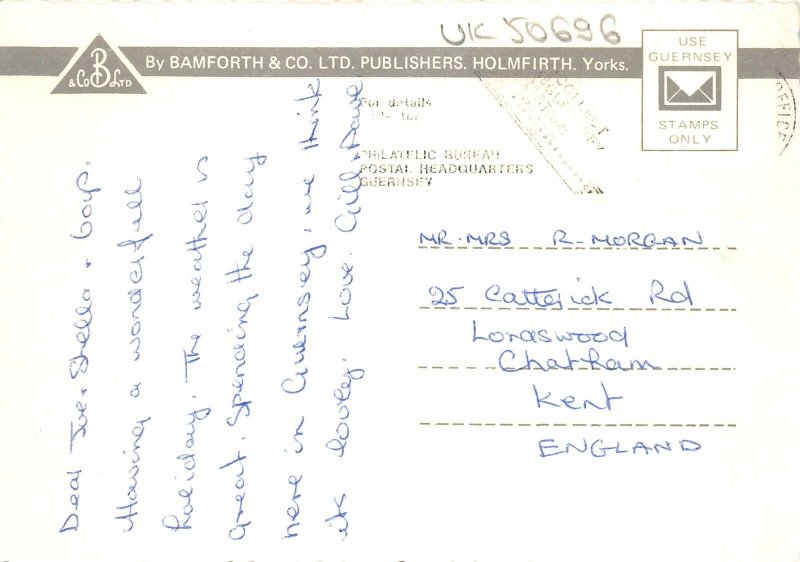 UK 50696
By BAMFORTH & CO. LTD. PUBLISHERS, HOLMFIRTH, Yorks.
B
& Co LTD
USE
GUERNSEY
STAMPS
ONLY
For details
PHILATELIC BUREAU
POSTAL HEADQUARTERS
GUERNSEY
OFFICE
Dear Stella + boys.
Having a wonderfull
holiday. The weather is
great. Spending the day
here in Guernsey, we think
its lovley. Love. Gill + Dave
MR. MRS R. MORGAN
25 Catterick Rd
Lordswood
Chatham
Kent
ENGLAND